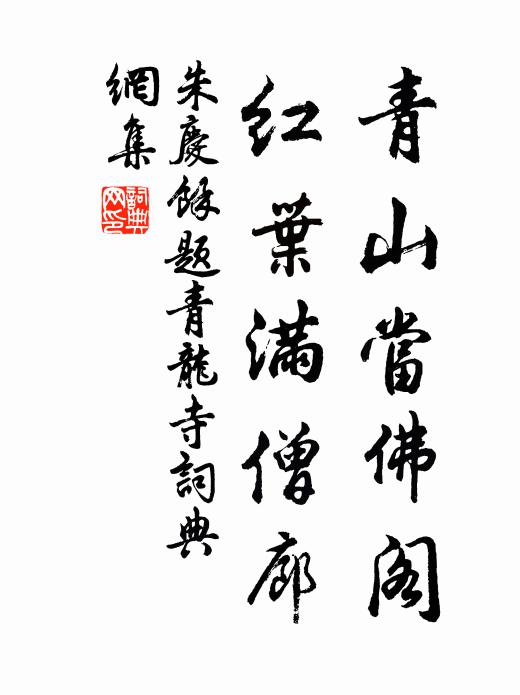 青山當佛閣
紅葉滿僧廊
朱慶餘題青龍寺詞典
網集
詞典
网印